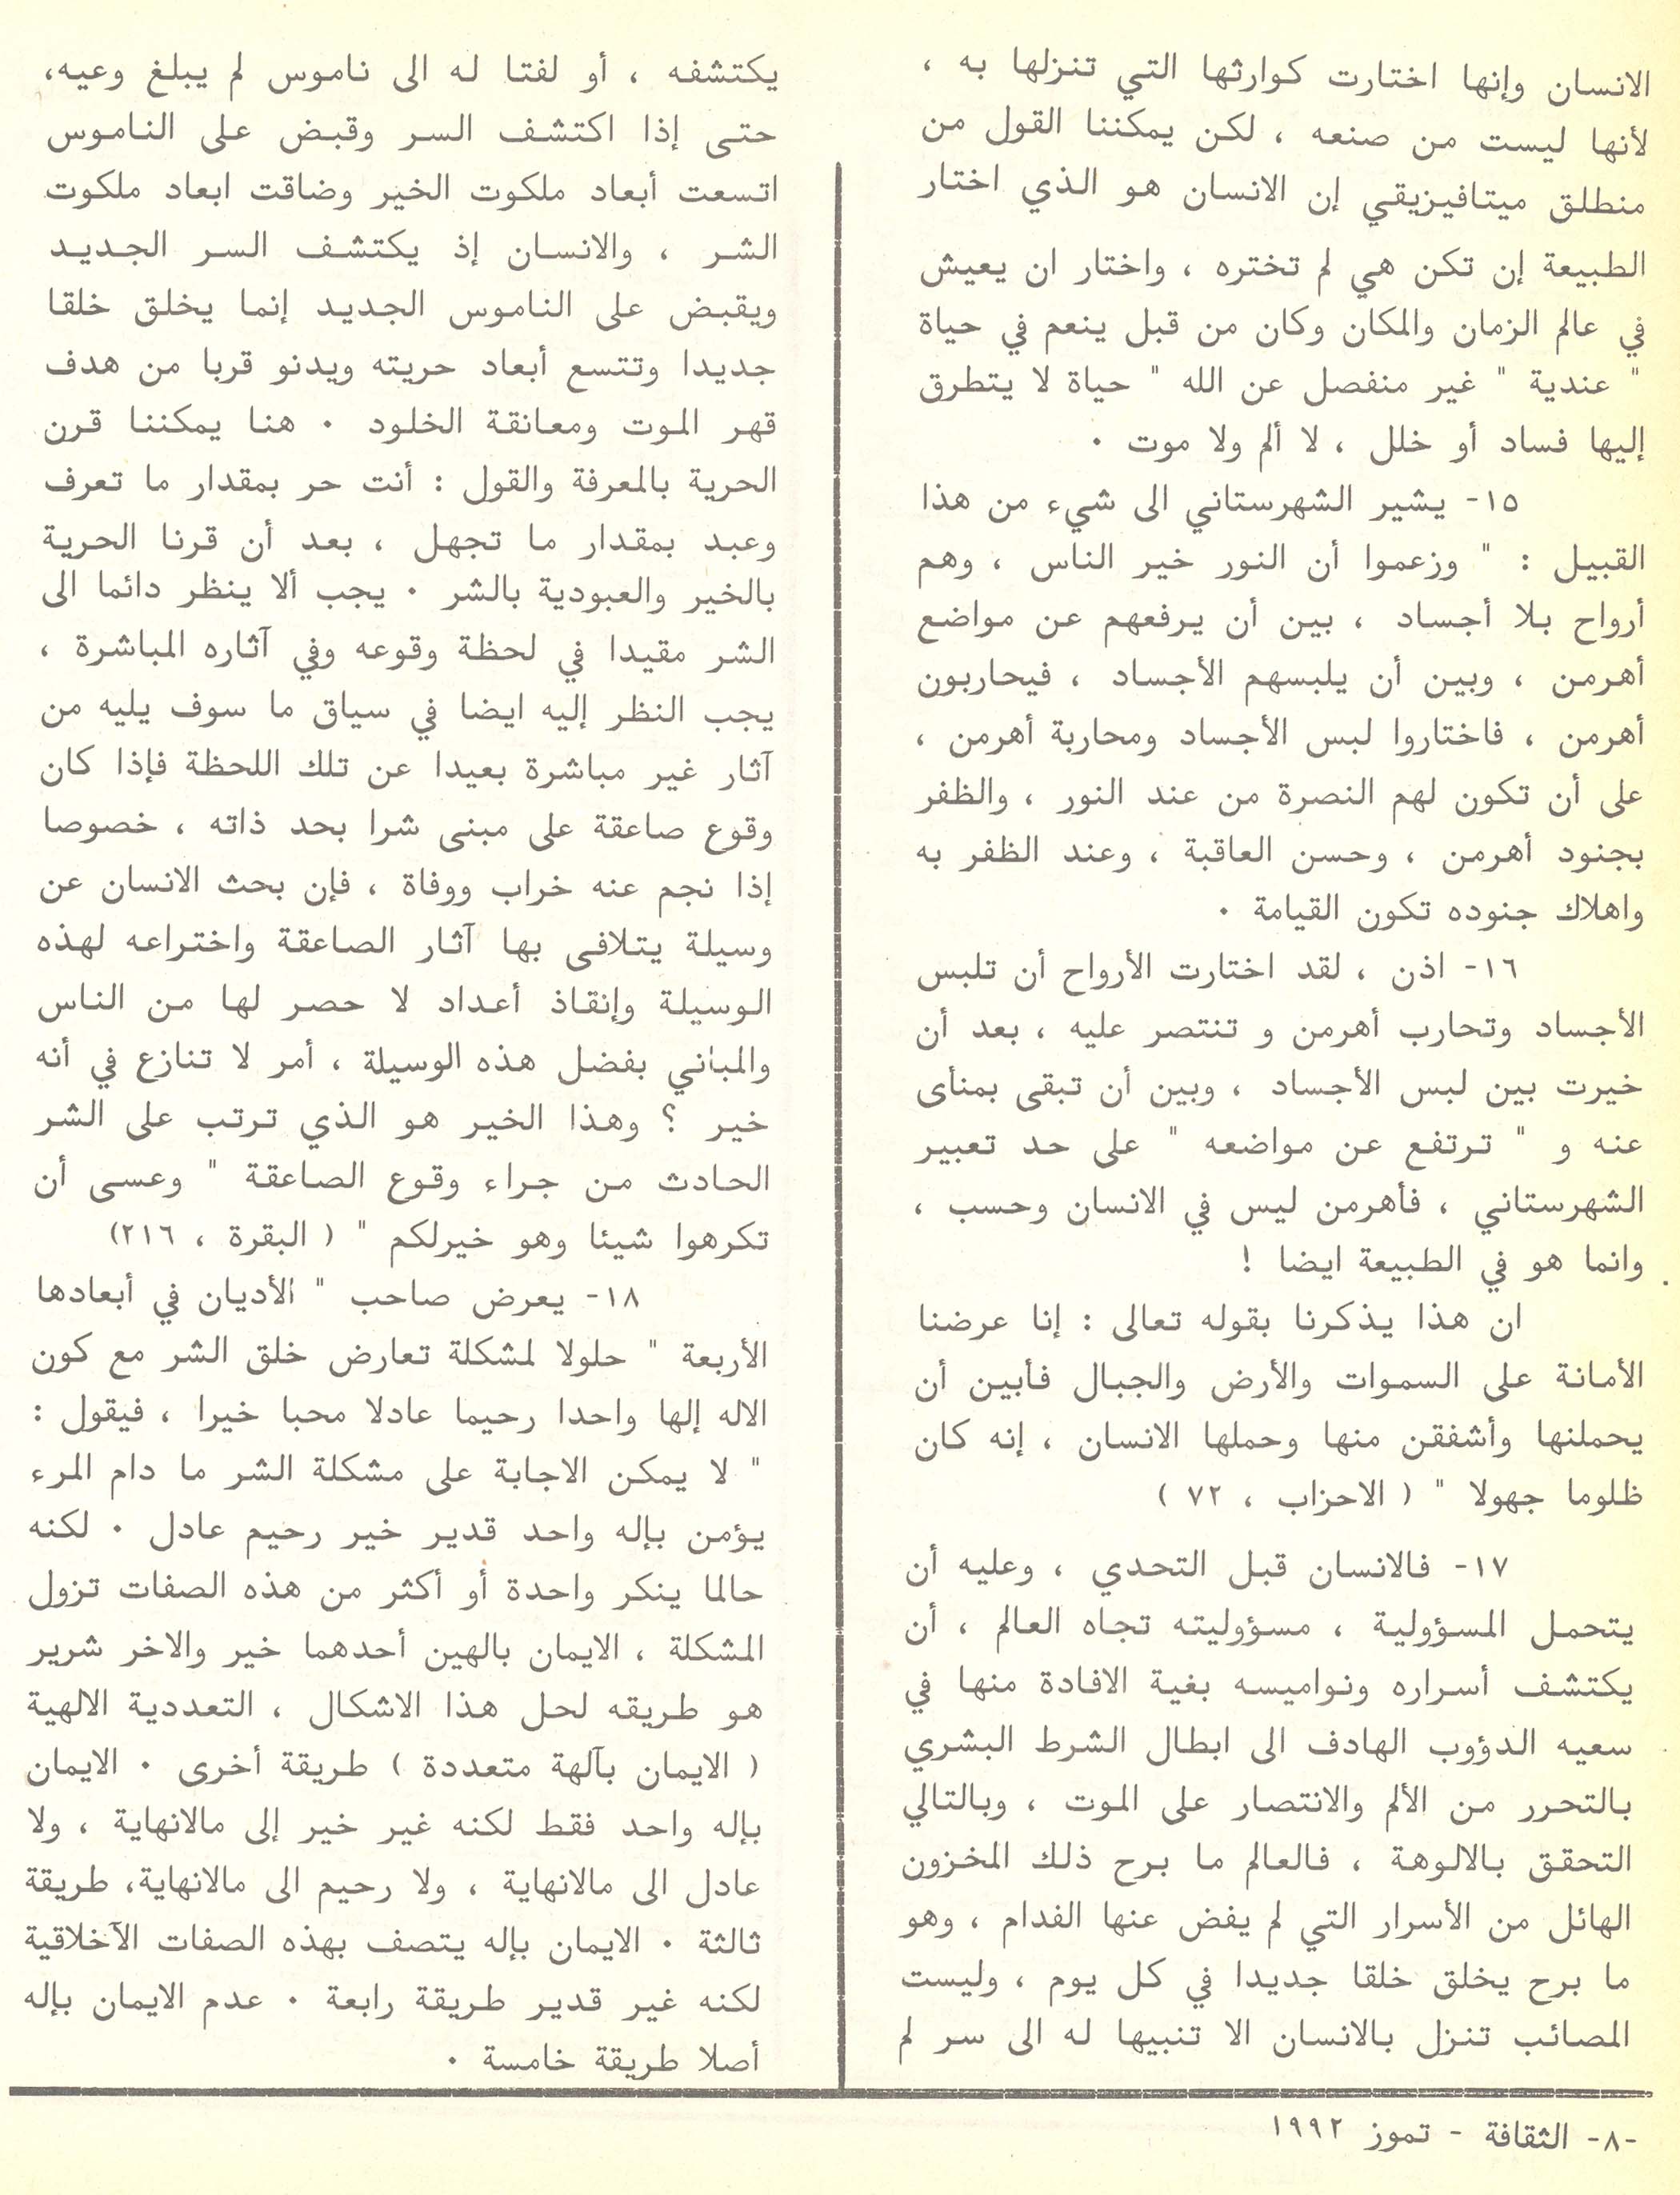 الانسان وإنها اختارت كوارثها التي تنزلها به ،
لأنها ليست من صنعه ، لكن يمكننا القول من
منطلق ميتافيزيقي إن الانسان هو الذي اختار
الطبيعة إن تكن هي لم تختره ، واختار ان يعيش
في عالم الزمان والمكان وكان من قبل ينعم في حياة
" عندية " غير منفصل عن الله " حياة لا يتطرق
إليها فساد أو خلل ، لا ألم ولا موت ٠
١٥- يشير الشهرستاني الى شيء من هذا
القبيل : " وزعموا أن النور خير الناس ، وهم
أرواح بلا أجساد ، بين أن يرفعهم عن مواضع
أهرمن ، وبين أن يلبسهم الأجساد ، فيحاربون
أهرمن ، فاختاروا لبس الأجساد ومحاربة أهرمن ،
على أن تكون لهم النصرة من عند النور ، والظفر
بجنود أهرمن ، وحسن العاقبة ، وعند الظفر به
واهلاك جنوده تكون القيامة ٠
١٦- اذن ، لقد اختارت الأرواح أن تلبس
الأجساد وتحارب أهرمن و تنتصر عليه ، بعد أن
خيرت بين لبس الأجساد ، وبين أن تبقى بمنأى
عنه و " ترتفع عن مواضعه " على حد تعبير
الشهرستاني ، فأهرمن ليس في الانسان وحسب ،
وانما هو في الطبيعة ايضا !
ان هذا يذكرنا بقوله تعالى : إنا عرضنا
الأمانة على السموات والأرض والجبال فأبين أن
يحملنها وأشفقن منها وحملها الانسان ، إنه كان
ظلوما جهولا " ( الاحزاب ، ٧٢ )
١٧- فالانسان قبل التحدي ، وعليه أن
يتحمل المسؤولية ، مسؤوليته تجاه العالم ، أن
يكتشف أسراره ونواميسه بغية الافادة منها في
سعيه الدؤوب الهادف الى ابطال الشرط البشري
بالتحرر من الألم والانتصار على الموت ، وبالتالي
التحقق بالالوهة ، فالعالم ما برح ذلك المخزون
الهائل من الأسرار التي لم يفض عنها الفدام ، وهو
ما برح يخلق خلقا جديدا في كل يوم ، وليست
المصائب تنزل بالانسان الا تنبيها له الى سر لم
يكتشفه ، أو لفتا له الى ناموس لم يبلغ وعيه،
حتى إذا اكتشف السر وقبض على الناموس
اتسعت أبعاد ملكوت الخير وضاقت ابعاد ملكوت
الشر ، والانسان إذ يكتشف السر الجديد
ويقبض على الناموس الجديد إنما يخلق خلقا
جديدا وتتسع أبعاد حريته ويدنو قربا من هدف
قهر الموت ومعانقة الخلود ٠ هنا يمكننا قرن
الحرية بالمعرفة والقول : أنت حر بمقدار ما تعرف
وعبد بمقدار ما تجهل ، بعد أن قرنا الحرية
بالخير والعبودية بالشر ٠ يجب ألا ينظر دائما الى
الشر مقيدا في لحظة وقوعه وفي آثاره المباشرة ،
يجب النظر إليه ايضا في سياق ما سوف يليه من
آثار غير مباشرة بعيدا عن تلك اللحظة فإذا كان
وقوع صاعقة على مبنى شرا بحد ذاته ، خصوصا
إذا نجم عنه خراب ووفاة ، فإن بحث الانسان عن
وسيلة يتلافى بها آثار الصاعقة واختراعه لهذه
الوسيلة وإنقاذ أعداد لا حصر لها من الناس
والمباني بفضل هذه الوسيلة ، أمر لا تنازع في أنه
خير ؟ وهذا الخير هو الذي ترتب على الشر
الحادث من جراء وقوع الصاعقة " وعسى أن
تكرهوا شيئا وهو خيرلكم " ( البقرة ، ٢١٦)
١٨- يعرض صاحب " الأديان في أبعادها
الأربعة " حلولا لمشكلة تعارض خلق الشر مع كون
الاله إلها واحدا رحيما عادلا محبا خيرا ، فيقول :
" لا يمكن الاجابة على مشكلة الشر ما دام المرء
يؤمن بإله واحد قدير خير رحيم عادل ٠ لكنه
حالما ينكر واحدة أو أكثر من هذه الصفات تزول
المشكلة ، الايمان بالهين أحدهما خير والاخر شرير
هو طريقه لحل هذا الاشكال ، التعددية الالهية
( الايمان بآلهة متعددة ) طريقة أخرى ٠ الايمان
بإله واحد فقط لكنه غير خير إلى مالانهاية ، ولا
عادل الى مالانهاية ، ولا رحيم الى مالانهاية، طريقة
ثالثة ٠ الايمان بإله يتصف بهذه الصفات الآخلاقية
لكنه غير قدير طريقة رابعة ٠ عدم الايمان بإله
أصلا طريقة خامسة ٠
-٨- الثقافة - تموز ١٩٩٢